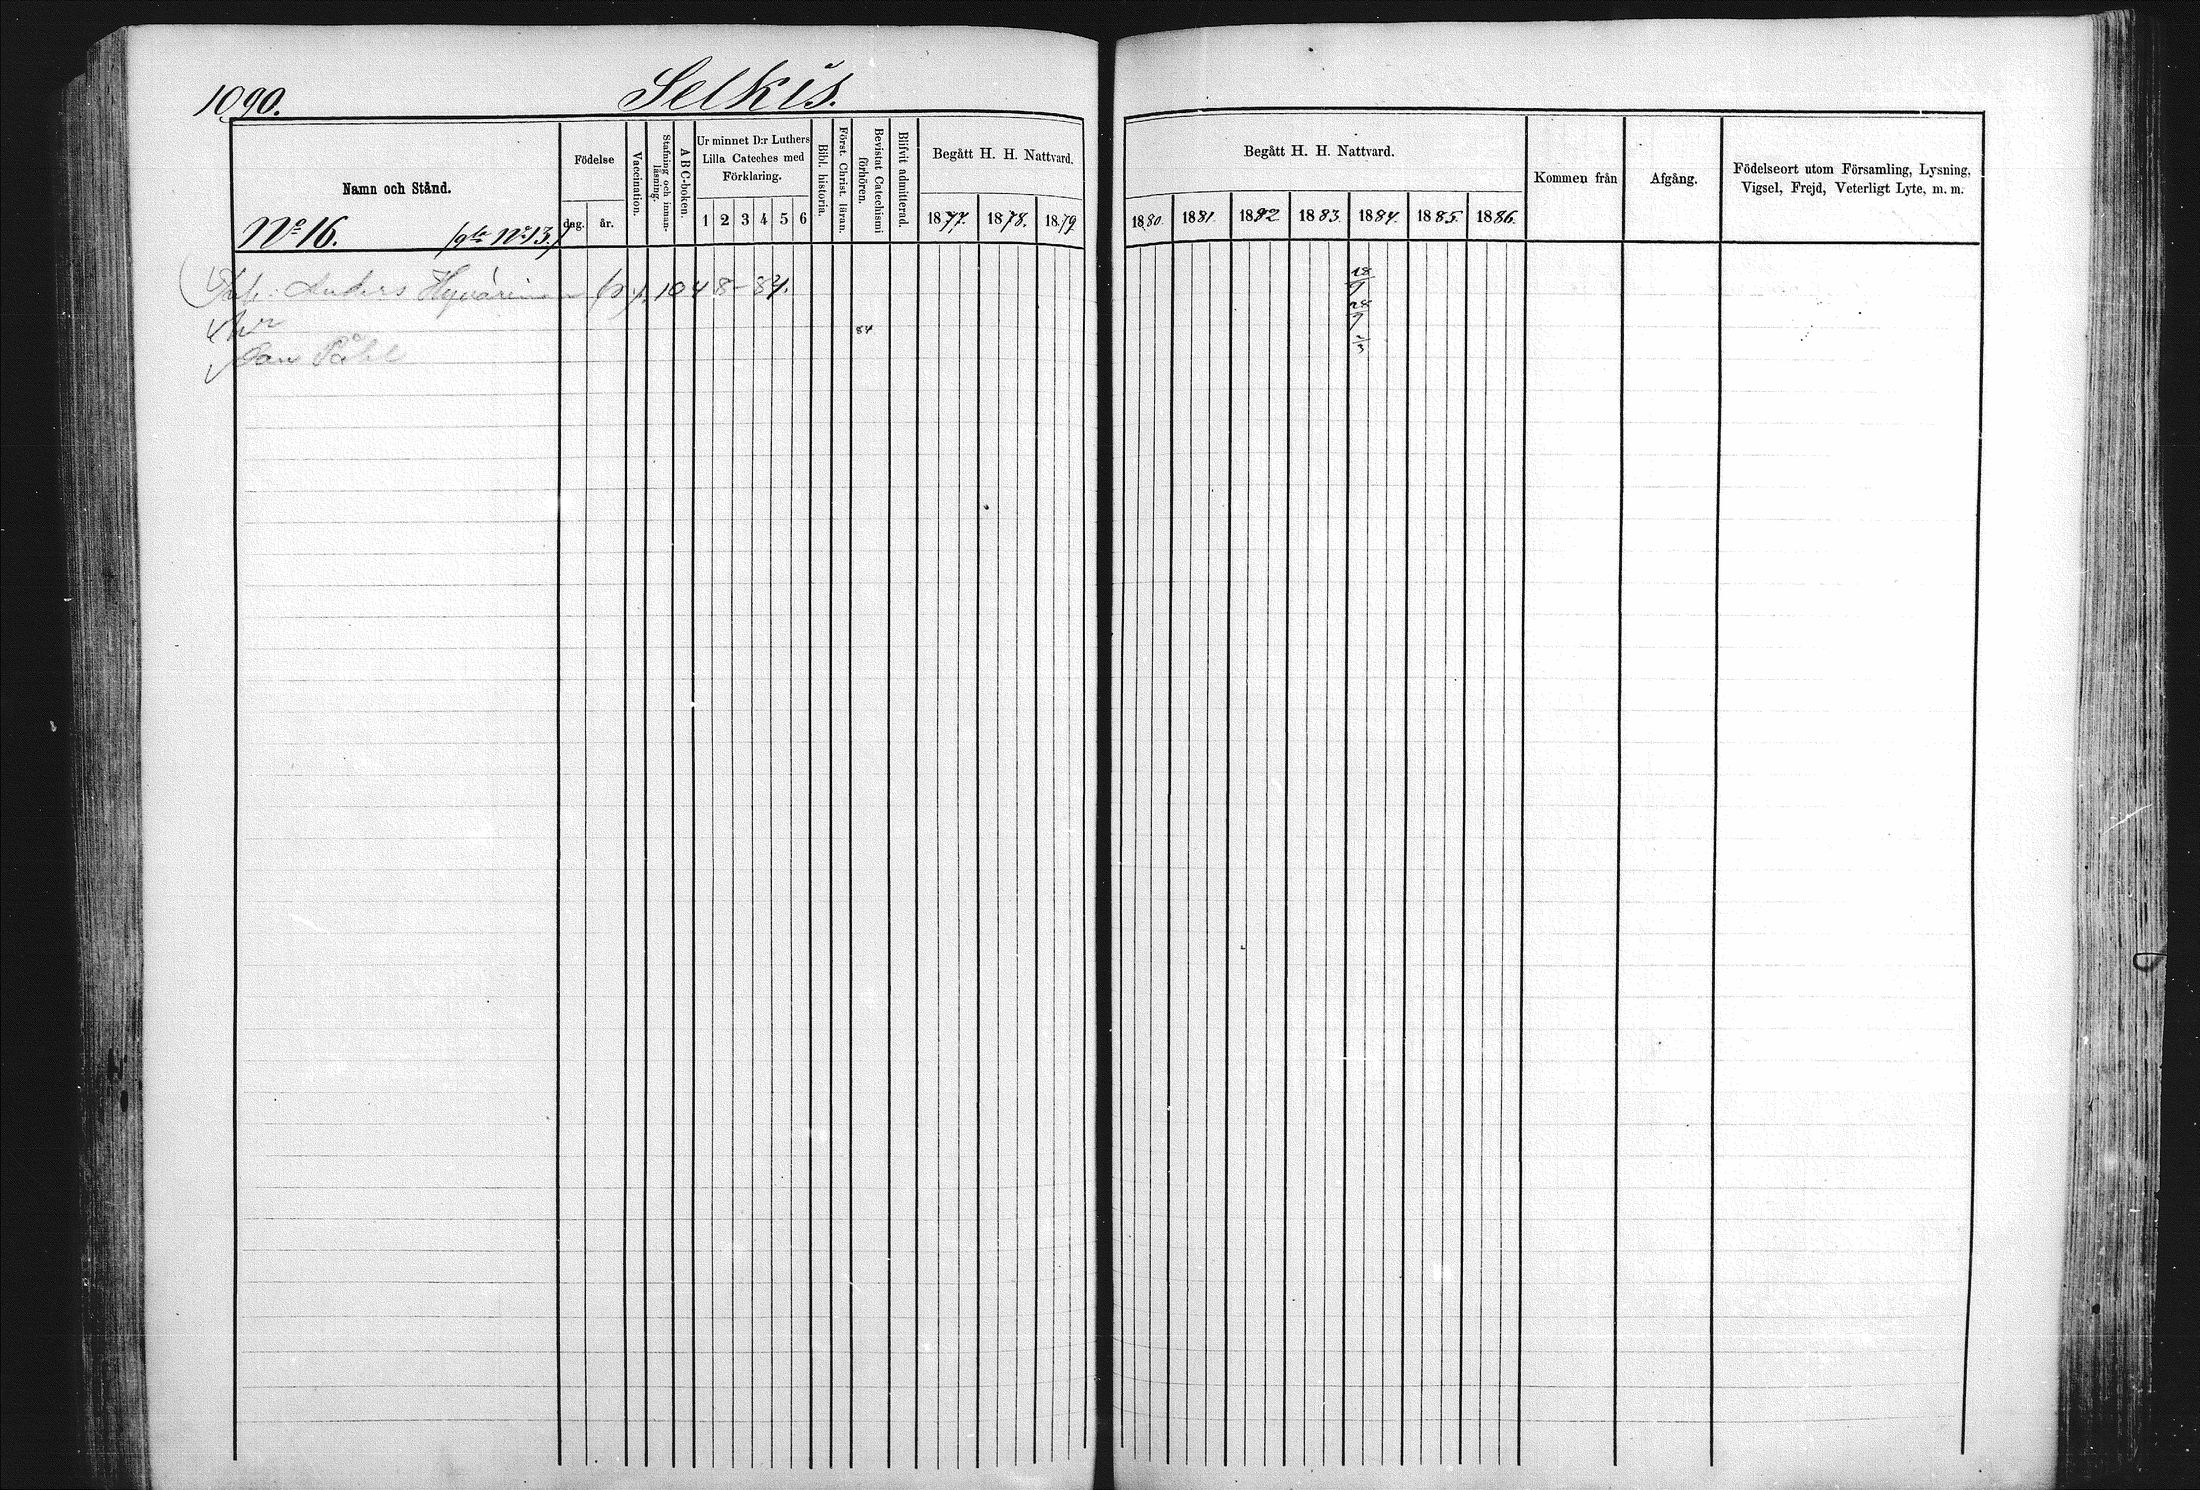 1090.
Selkis.
Namn och Stånd.
Födelse
dag.
år.
Vaccination.
Stafning och innan-
läsning.
A B C-boken.
Ur minnet D:r Luthers
Lilla Cateches med
Förklaring.
1 2 3 4 5 6
Bibl. historia.
Först. Christ. läran.
Bevistat Catechismi
förhören.
Blifvit admitterad.
Begått H. H. Nattvard.
1877. 1878. 1879
No 16. (gla No 13.)
Anders Hyvärinen
1048-84.
84
Påhl
Begått H. H. Nattvard.
1880. 1881. 1882 1883. 1884. 1885. 1886.
Kommen från
Afgång.
Födelseort utom Församling, Lysning,
Vigsel, Frejd, Veterligt Lyte, m. m.